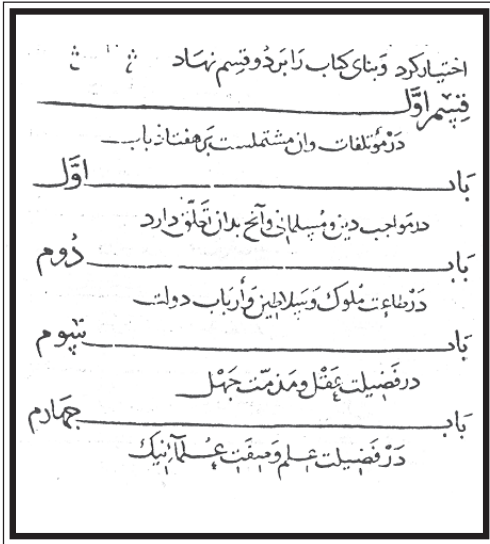 اختیار کرد وبنای کتاب را بر دو قسم نهاد
قسم اول
در مؤتلفات وان مشتملست بر هفتاد باب
باب اول
در مواجب دین و مسلمانی وآنچ بدان تعلق دارد
باب دوم
در طاعت ملوک وسلاطین وأرباب دولت
باب سوم
در فضیلت عقل و مذمت جهل
باب چهارم
در فضیلت علم وصفت علماء نیک